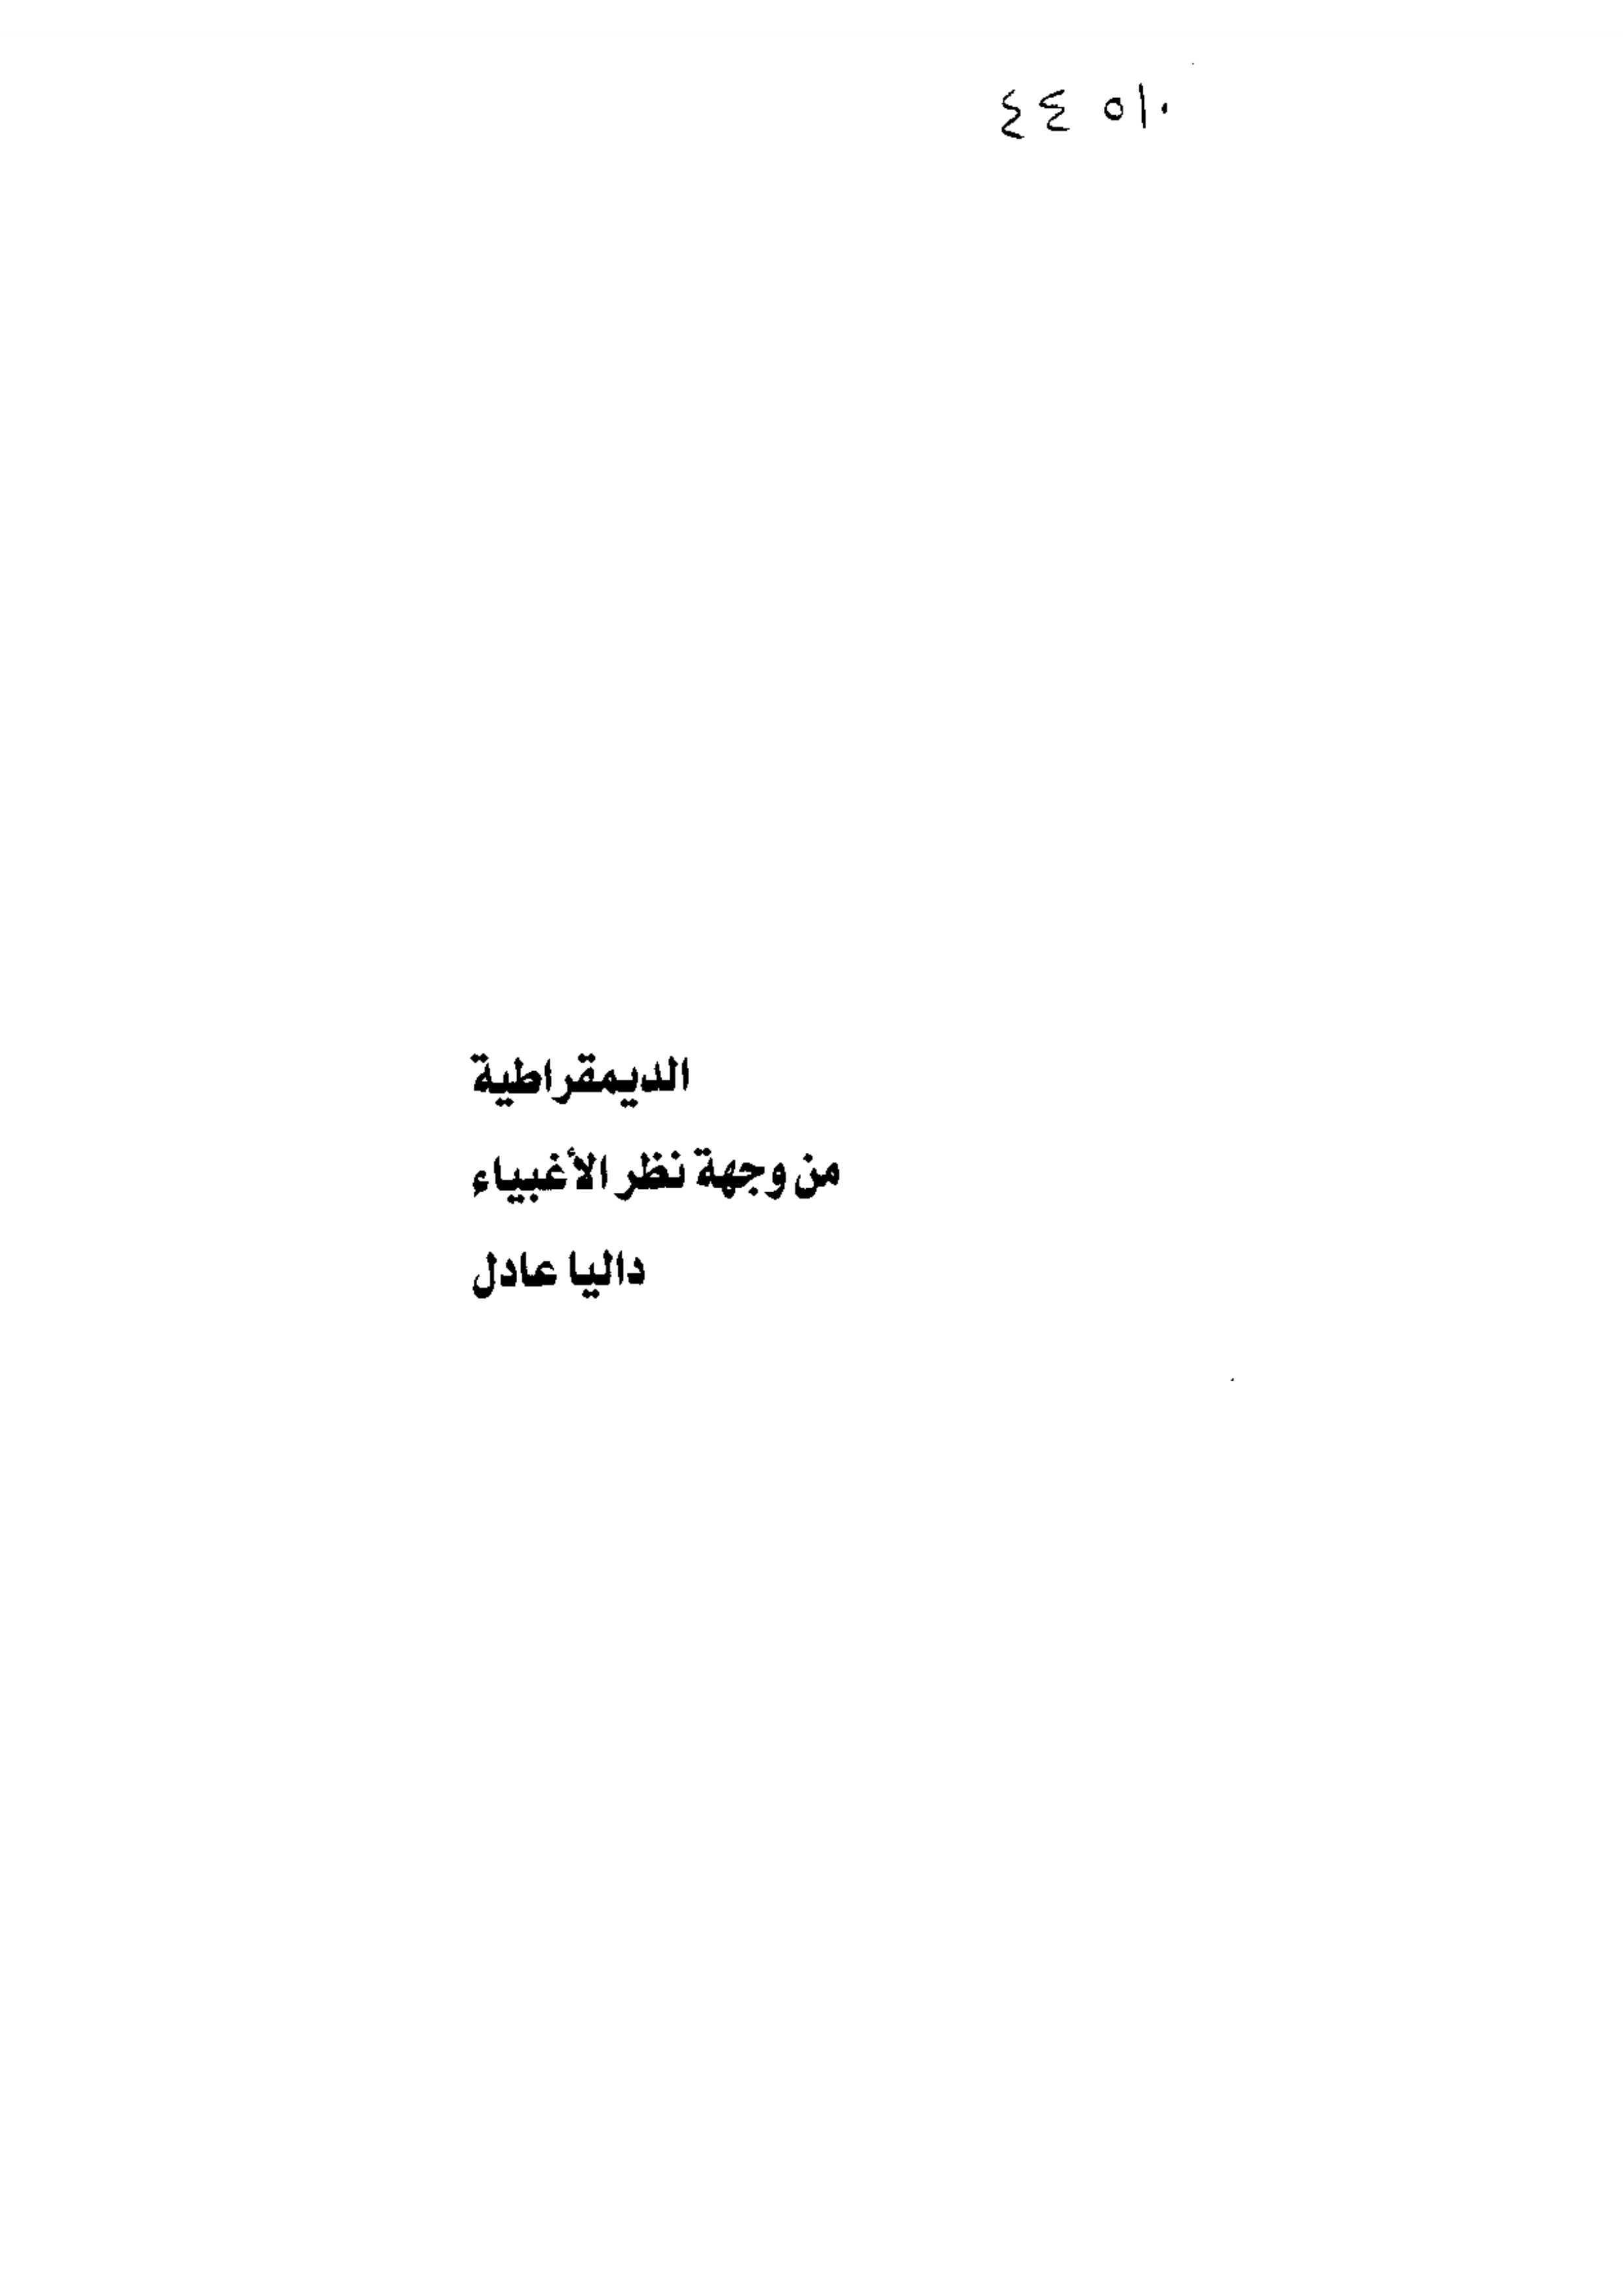 ٤٤ ٥١٠
الديمقراطية
من وجهة نظر الأغبياء
داليا عادل